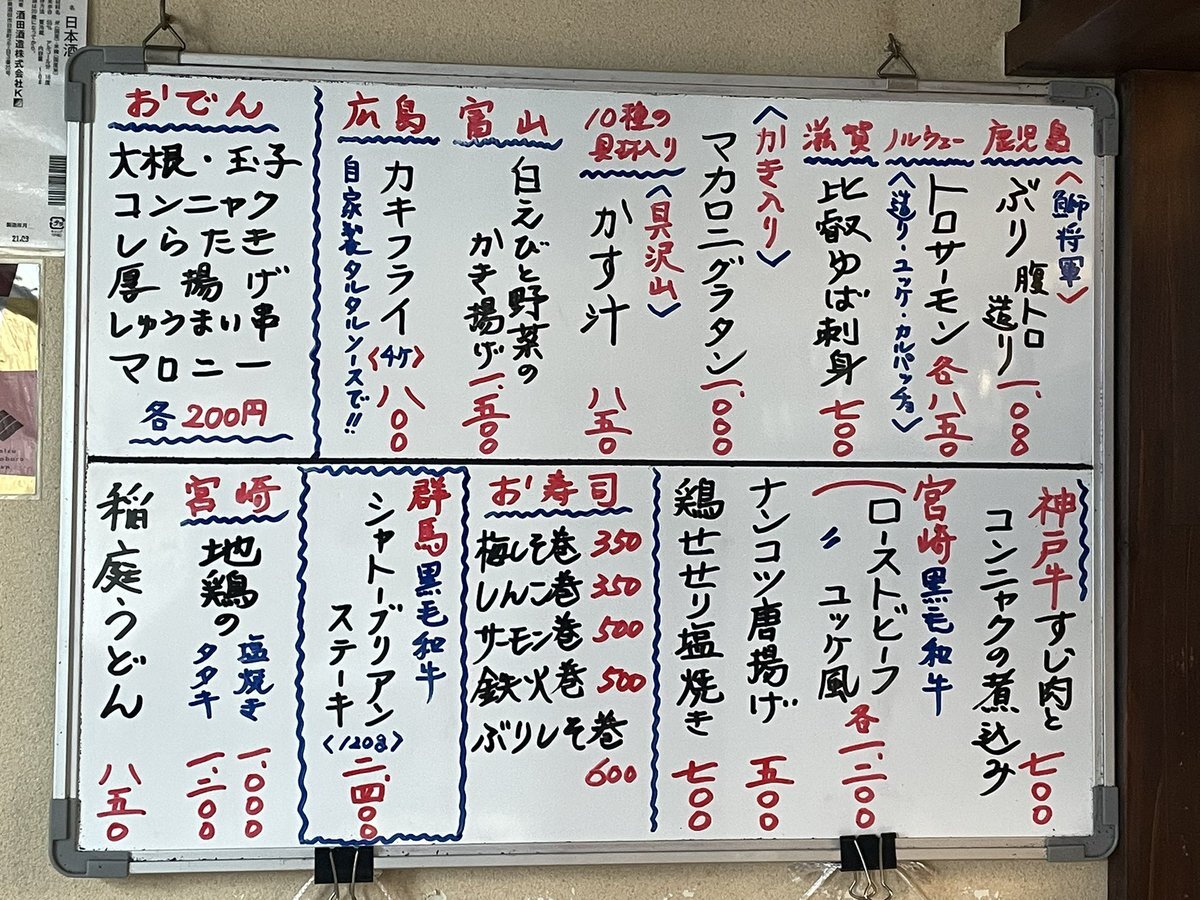 鹿児島
〈鰤将軍〉
ぶり腹トロ
造り
一、〇〇八
ノルウェー
トロサーモン
〈造り・ユッケ・カルパッチョ〉
各八五〇
滋賀
比叡ゆば刺身
七〇〇
〈かき入り〉
マカロニグラタン
一、〇〇〇
10種の
具材入り
〈具沢山〉
かす汁
八五〇
富山
白えびと野菜の
かき揚げ
一、五〇〇
広島
カキフライ
〈4ケ〉
八〇〇
自家製タルタルソースで!!
おでん
大根・玉子
コンニャク
しらたき
厚揚げ
しゅうまい串
マロニー
各200円
神戸牛すじ肉と
コンニャクの煮込み
七〇〇
宮崎黒毛和牛
ローストビーフ
〃 ユッケ風
各一、二〇〇
ナンコツ唐揚げ
五〇〇
鶏せせり塩焼き
七〇〇
お寿司
梅しそ巻 350
しんこ巻 350
サーモン巻 500
鉄火巻 500
ぶりしそ巻
600
群馬黒毛和牛
シャトーブリアン
ステーキ
〈120g〉
二、四〇〇
宮崎
地鶏の
塩焼き
一、〇〇〇
タタキ
一、二〇〇
稲庭うどん
八五〇
日本酒
酒田酒造株式会社
製造年月
21.09